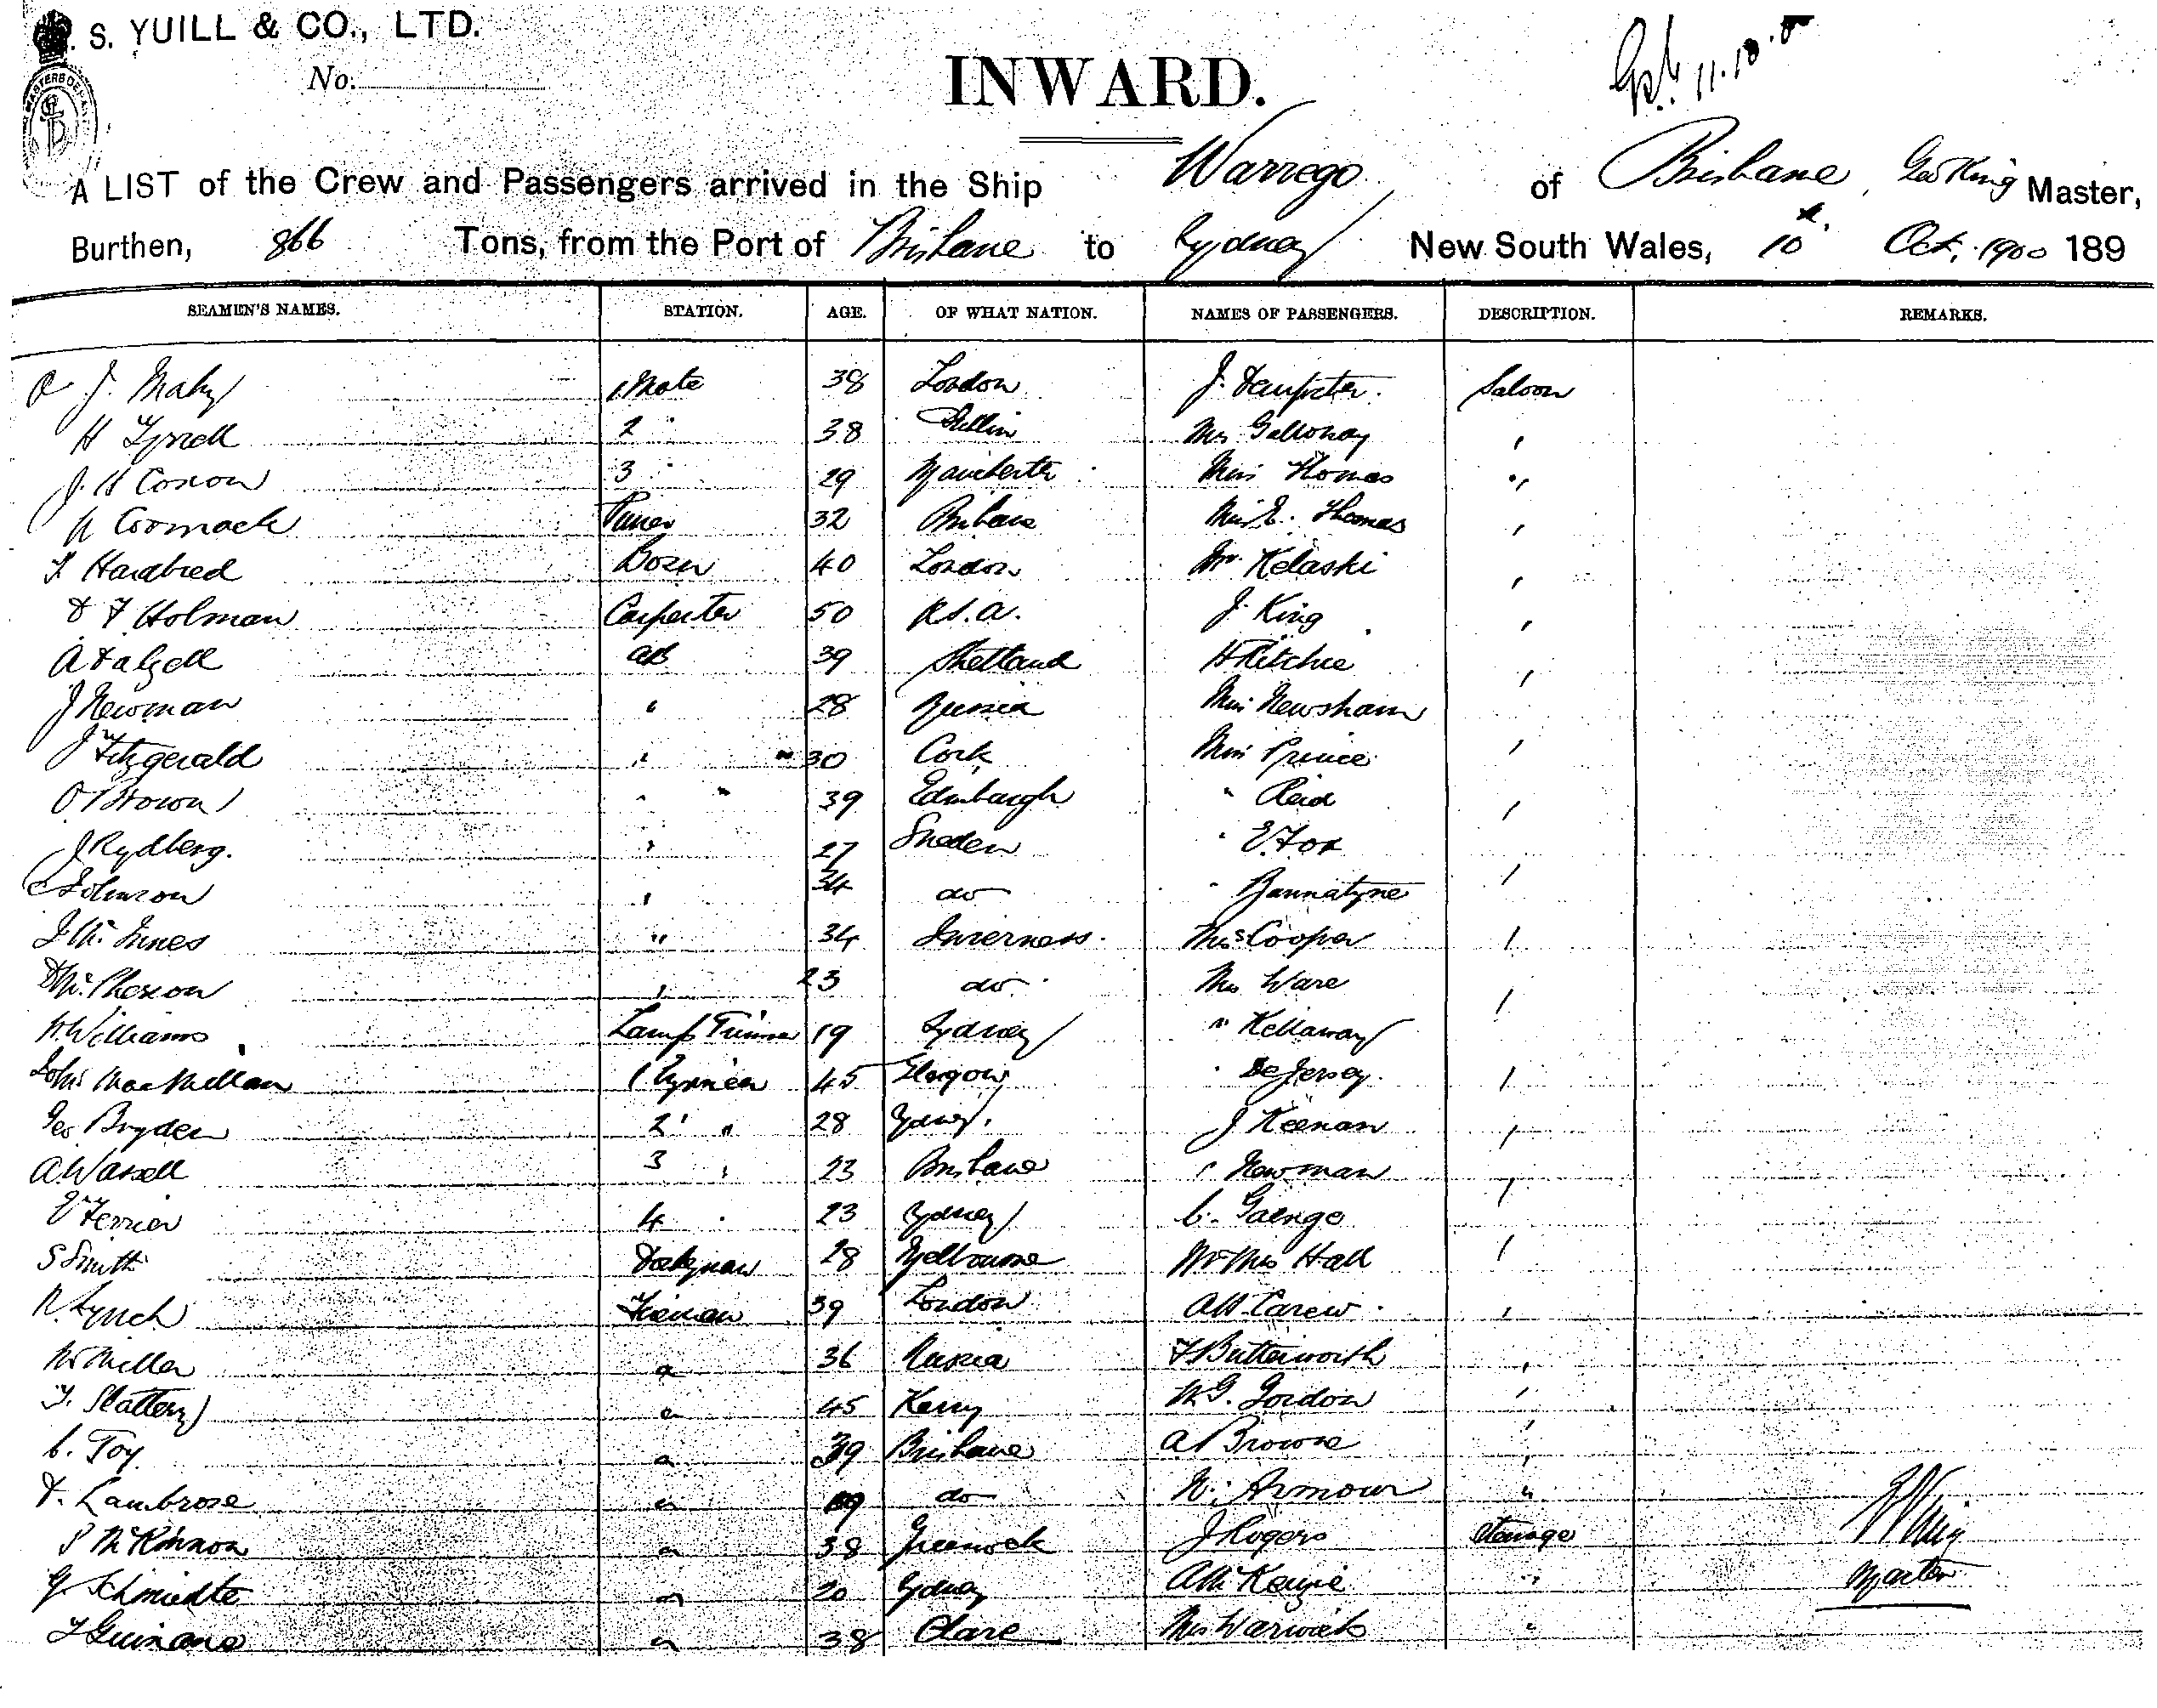 . S. YUILL & CO., LTD.
No.
INWARD.
11.10.00
A LIST of the Crew and Passengers arrived in the Ship Warrego of Brisbane, Geo King Master,
Burthen, 866 Tons, from the Port of Brisbane to Sydney New South Wales, 10th Oct, 1900 189
SEAMEN'S NAMES. STATION. AGE. OF WHAT NATION. NAMES OF PASSENGERS. DESCRIPTION. REMARKS.
J. 1 Mate 38 London J. Dempster. Saloon
H Tyrrell 2 " 38 Dublin Mrs Galloway "
J. H Coxon 3 " 29 Manchester Miss Thomas "
Cormack 32 Brisbane Miss E. Thomas "
Hardbred Bosn 40 London Mr Kelaski "
D F Holman Carpenter 50 J. King "
A Dalzell AB 39 Shetland H Ritchie "
J Newman " 28 Russia Miss Newsham
J Fitzgerald " 30 Cork Miss Prince "
O Brown " 39 Edinburgh " Reid "
J Rydberg. " 27 Sweden " E. Fox
C Johnson " 34 do " Bannatyne "
J McInnes " 34 Inverness. Mrs Cooper "
D McPherson " 23 do Mrs Ware "
W Williams Lamp Trimmer 19 Sydney " Kellaway
John MacMillan 1 45 Glasgow " De Jersey. "
Geo Bryden 2 " 28 Sydney. J Keenan "
A Wassell 3 " 23 Brisbane " Newman "
E Ferrier 4 " 23 Sydney C.
S Smith Donkeyman 28 Melbourne Mr Mrs Hall "
Lynch Fireman 39 London A H Carew "
W Miller " 36 Russia F Butterworth "
T. Slattery " 45 Kerry W G. Gordon "
C. Toy " 39 Brisbane A Browne "
D. Lambrose " do Armour "
P McKinnon " 38 Greenock J Rogers Steerage King
G Schmiedte " 20 Sydney A McKenzie " Master
T Guinane " 38 Clare Mrs Warwick "